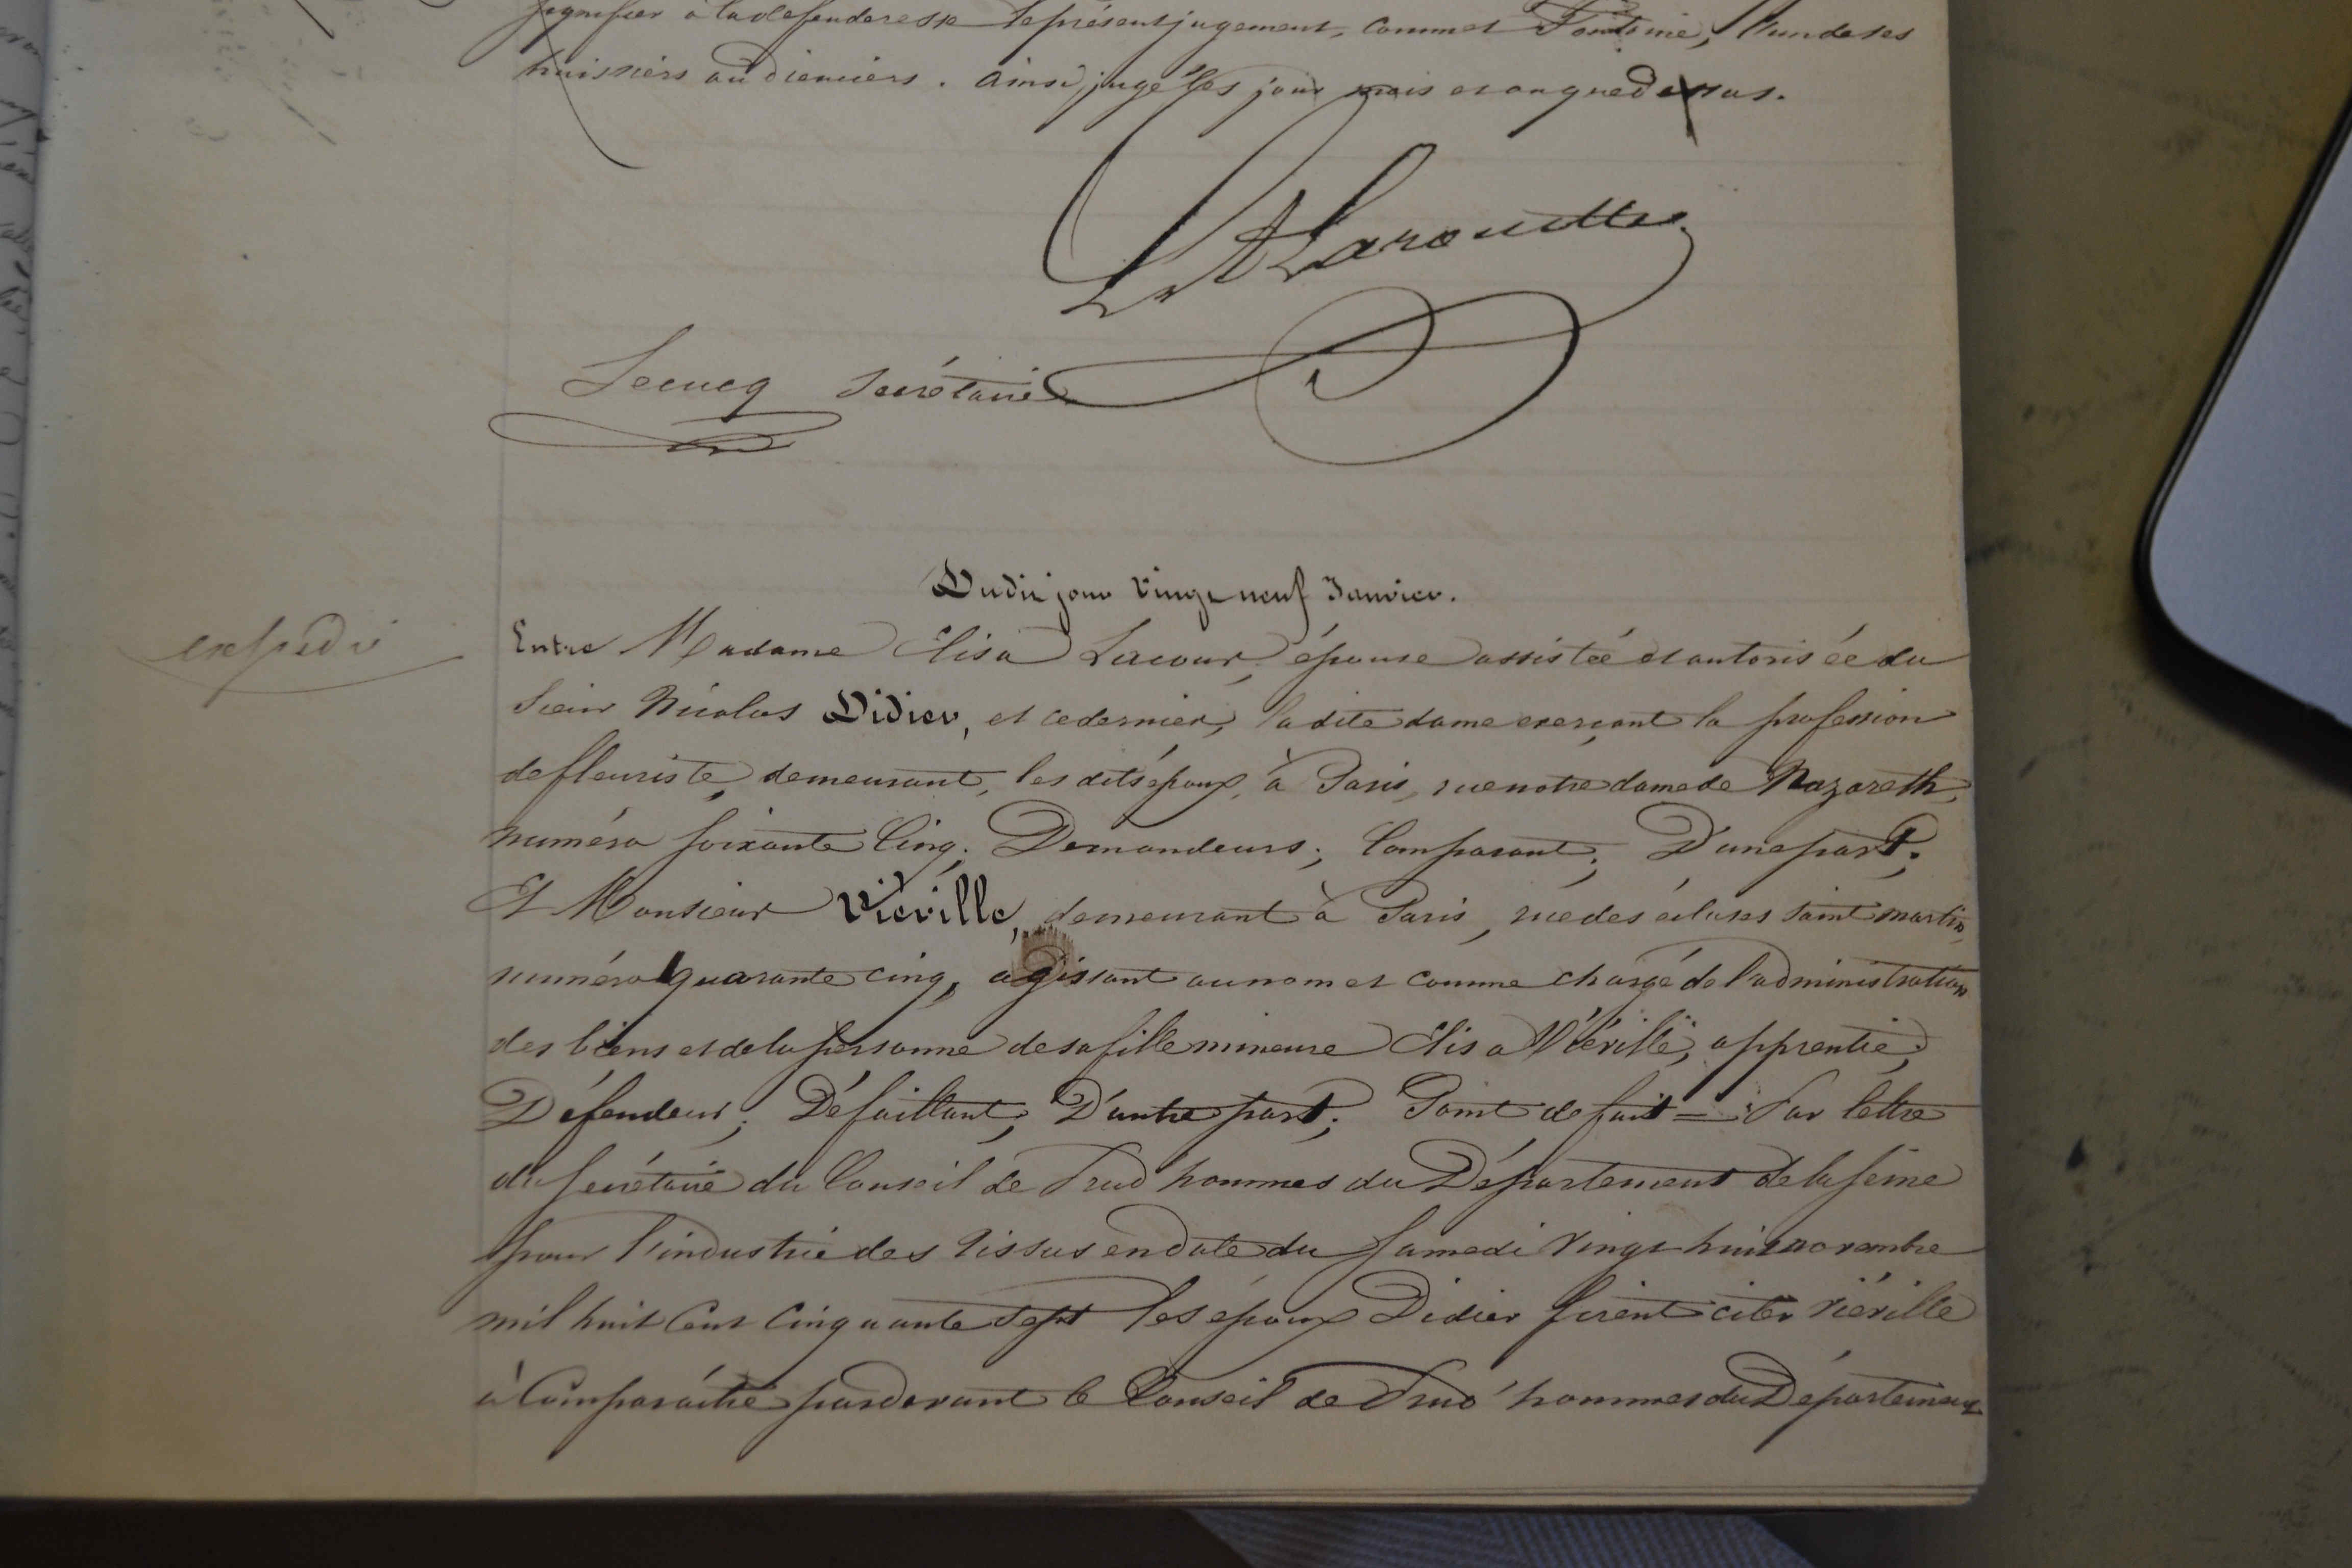 signifier à la defenderesse le présent jugement, commet Fontaine, l'un de ses
huissiers audienciers. ainsi jugé les jour mois et an que dessus.
Larouette
Lecucq secrétaire
Dudit jour vingt neuf Janvier.
expédié
Entre Madame Elisa Lecour, épouse assistée et autorisée du
Sieur Nicolas Didier, et ce dernier, la dite dame exerçant la profession
de fleuriste, demeurant, les dits époux, à Paris, rue notre dame de Nazareth,
numéro soixante Cinq. Demandeurs; Comparant; D'une part;
Et Monsieur Viéville, demeurant à Paris, rue des écluses saint martin,
numéro quarante cinq, agissant au nom et comme chargé de l'administration
des biens et de la personne de sa fille mineure Elisa Viéville, apprentie;
Défendeur; Défaillant; D'autre part; Point de fait = Par lettre
du secrétaire du Conseil de Prud'hommes du Département de la seine
pour l'industrie des tissus en date du samedi vingt huit novembre
mil huit Cent Cinquante sept les époux Didier firent citer Viéville
à Comparaître pardevant le Conseil de Prud'hommes du Département